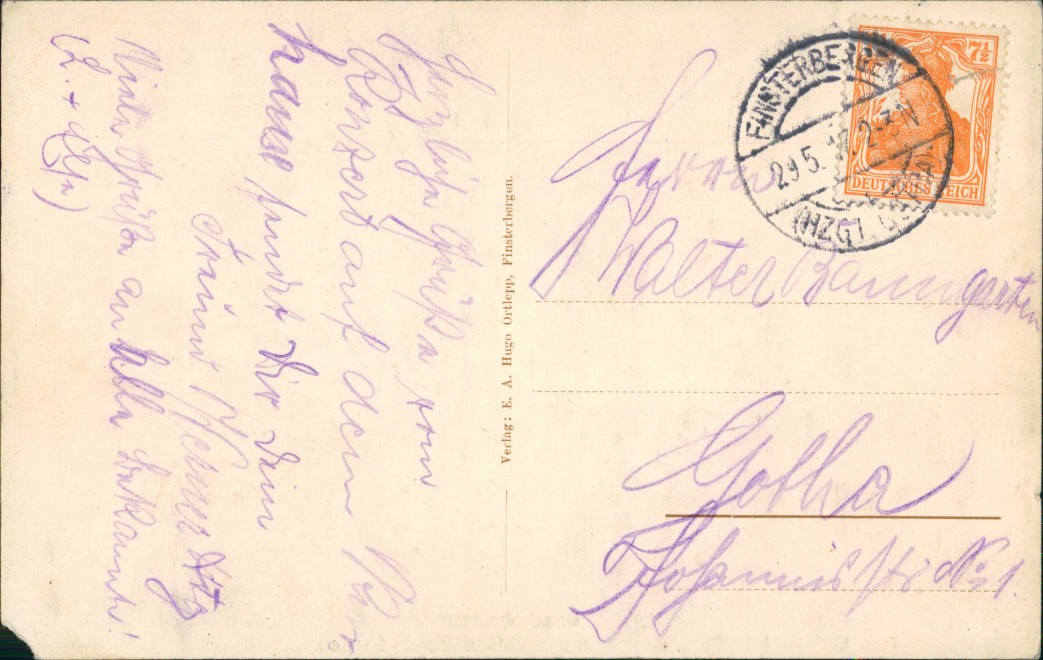 Herzliche Grüße vom
Konzert auf dem Kur
hause sendet Dir Dein
Freund Werner
Viele Grüße an alle Bekannte!
Verlag: E. A. Hugo Ortlepp, Finsterbergen.
FINSTERBERGEN
29.5. 2-3N
(HZGT. GOTHA)
7½
DEUTSCHES REICH
Herrn
Walter Baumgarten
Gotha
Johannisstr. No 1.